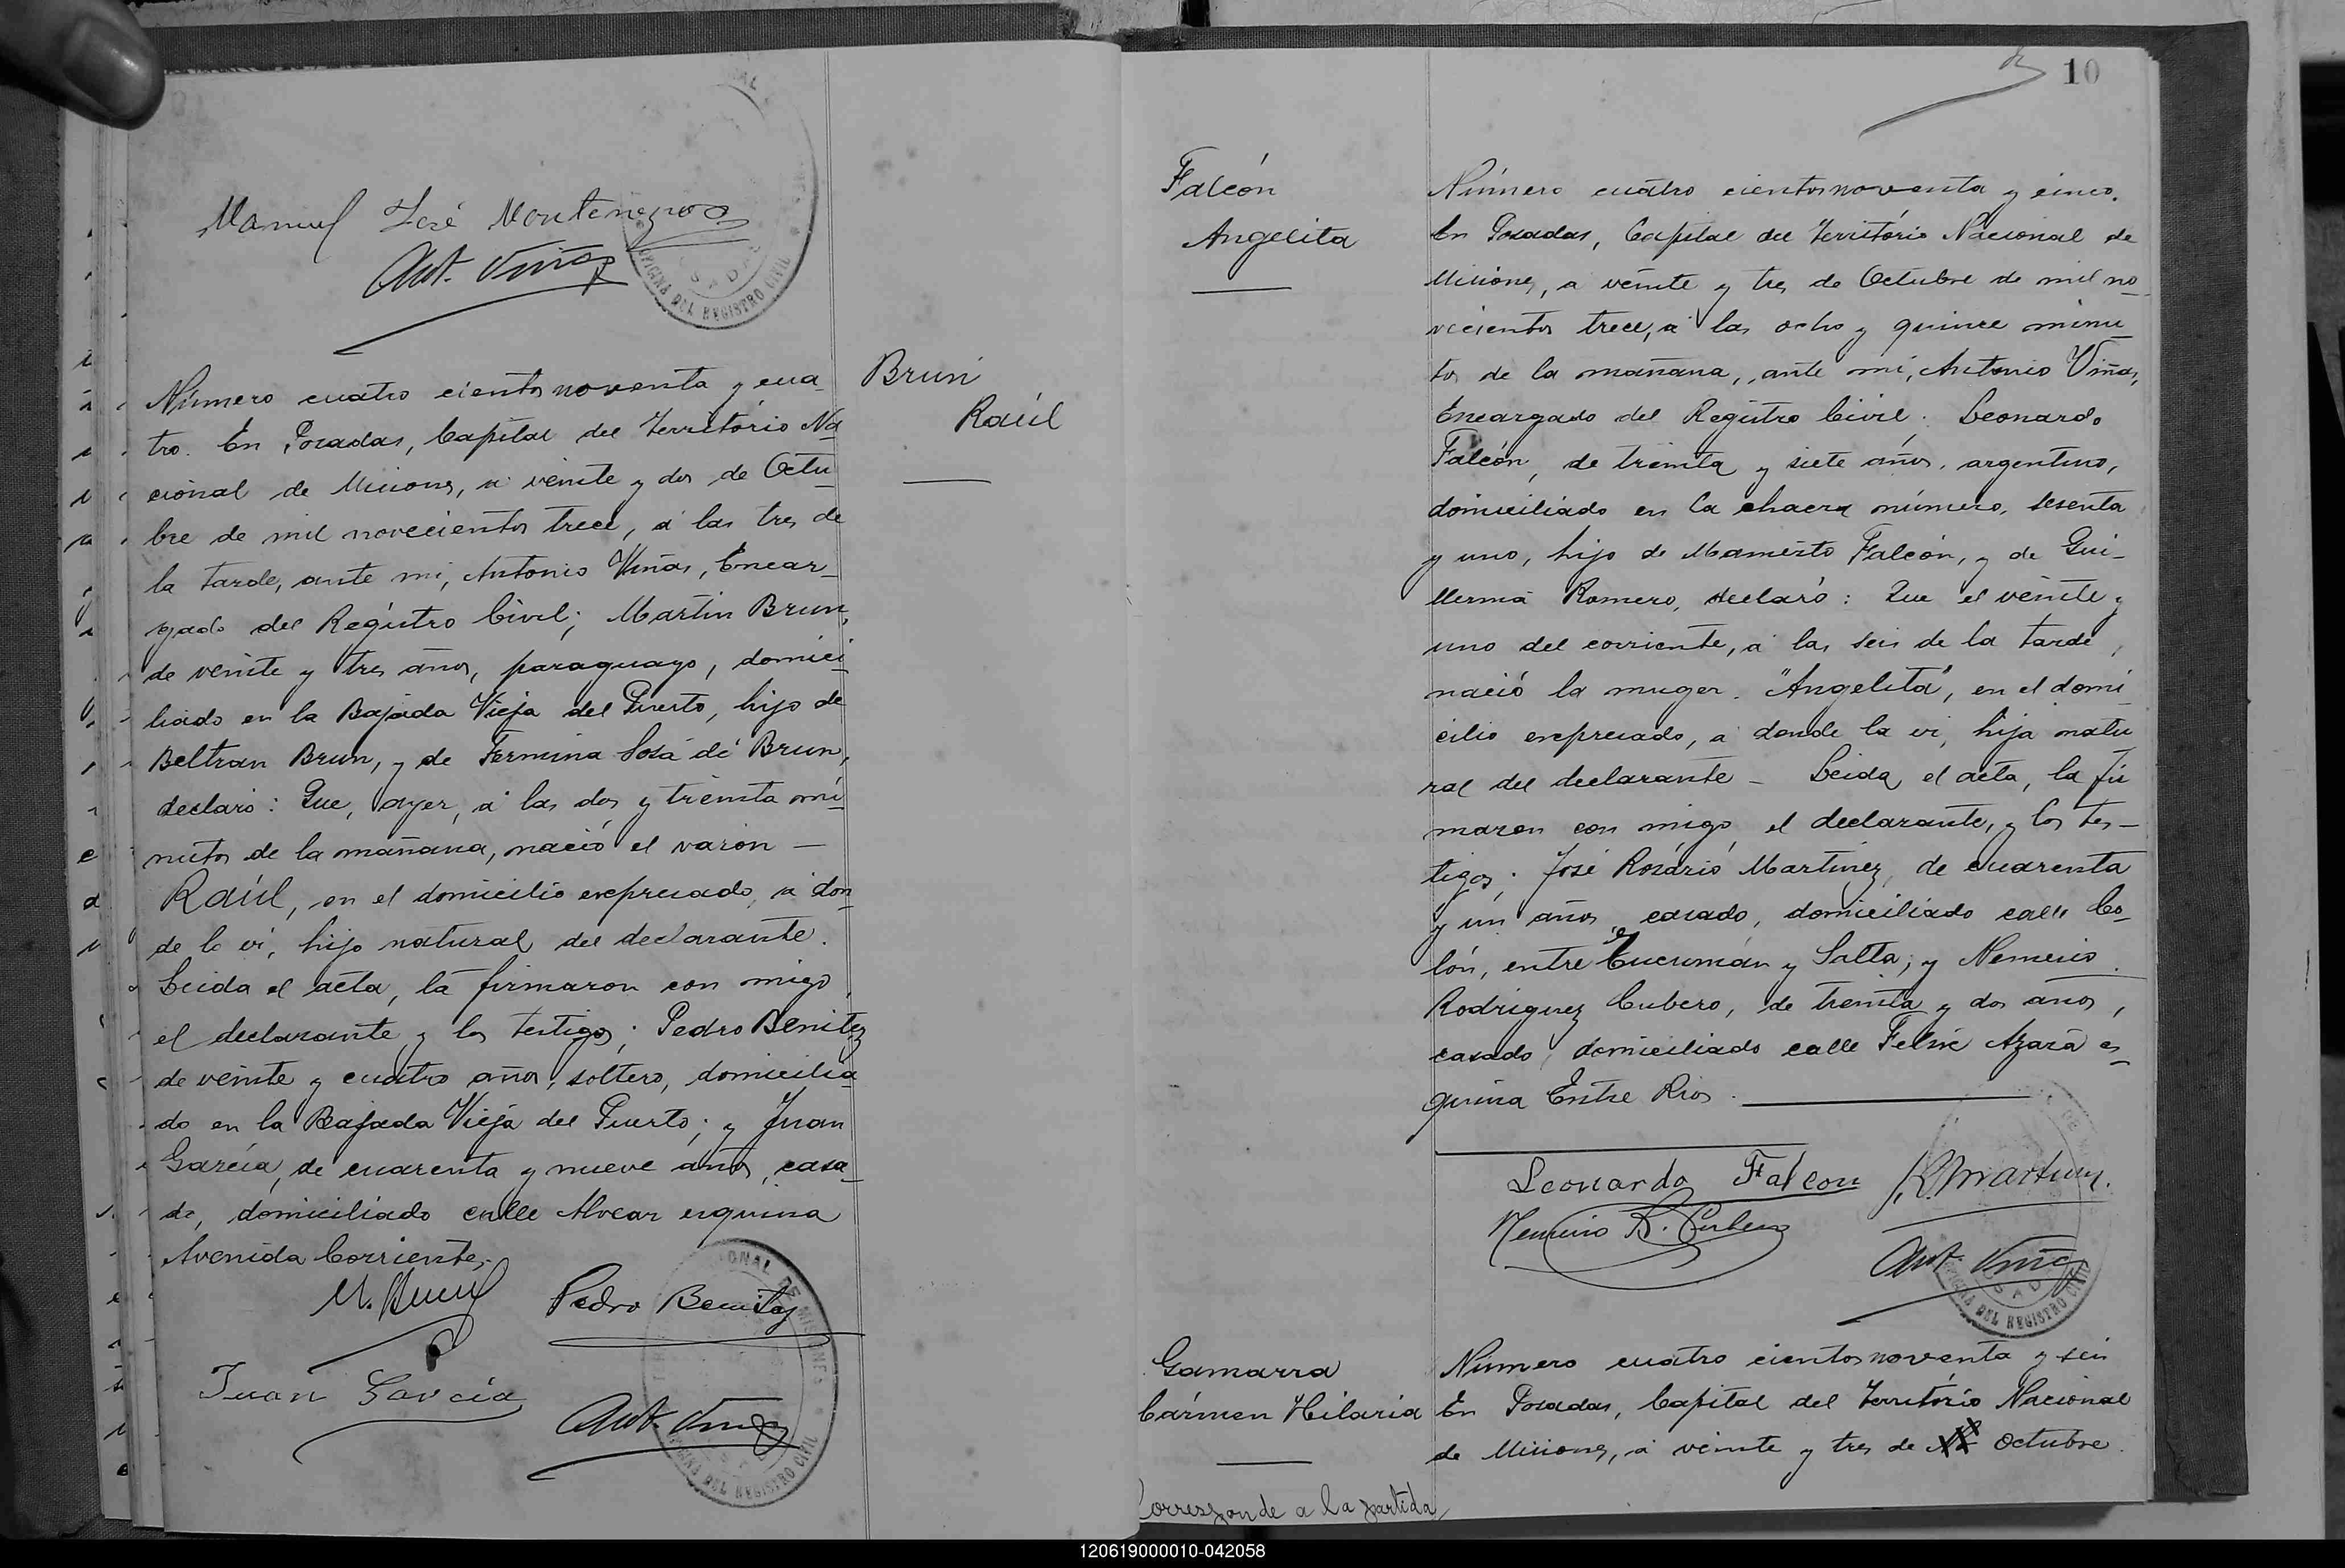 Manuel José Montenegro
Ant. Viñas
OFICINA DEL REGISTRO CIVIL
Número cuatro cientos noventa y cua_
tro. En Posadas, Capital del Território Na_
cional de Misiones, a veinte y dos de Octu_
bre de mil novecientos trece, á las tres de
la tarde, ante mi, Antonio Viñas, Encar_
gado del Registro Civil; Martin Brun,
de veinte y tres años, paraguayo, domici_
liado en la Bajada Vieja del Puerto, hijo de
Beltran Brun, y de Fermina Sosa de Brun,
declaró: Que, ayer, á las dos y treinta mi_
nutos de la mañana, nació el varon —
Raúl, en el domicilio expresado, a don_
de lo vi, hijo natural del declarante.
Leida el acta, la firmaron con migo,
el declarante y los testigos; Pedro Benitez
de veinte y cuatro años, soltero, domicilia_
do en la Bajada Vieja del Puerto; y Juan
García, de cuarenta y nueve años, casa_
do, domiciliado calle Alvear esquina
Avenida Corrientes.
M. Brun Pedro Benitez
Juan Garcia Ant. Viñas
OFICINA DEL REGISTRO CIVIL
Brun
Raúl
10
Falcón
Angelita
Número cuatro cientos noventa y cinco.
En Posadas, Capital del Território Nacional de
Misiones, a veinte y tres de Octubre de mil no_
vecientos trece, a las ocho y quince minu_
tos de la mañana, ante mi, Antonio Viñas,
Encargado del Registro Civil. Leonardo
Falcón, de treinta y siete años, argentino,
domiciliado en la chacra número, sesenta
y uno, hijo de Mamerto Falcón, y de Gui_
llerma Romero, declaró: Que el veinte y
uno del corriente, á las seis de la tarde,
nació la muger "Angelita", en el domi_
cilio expresado, a donde la vi, hija natu_
ral del declarante — Leida el acta, la fir_
maron con migo, el declarante, y los tes_
tigos; José Rosário Martinez, de cuarenta
y un años, casado, domiciliado calle Co_
lón, entre Tucumán y Salta; y Nemesio
Rodriguez Cubero, de treinta y dos años,
casado, domiciliado calle Felix Azara es_
quina Entre Rios.
Leonardo Falcon J. R. Martinez.
Nemesio R. Cubero
Ant. Viñas
OFICINA DEL REGISTRO CIVIL
Gamarra
Cármen Hilaria
Número cuatro cientos noventa y seis
En Posadas, Capital del Território Nacional
de Misiones, á veinte y tres de Octubre
Corresponde a la partida
120619000010-042058